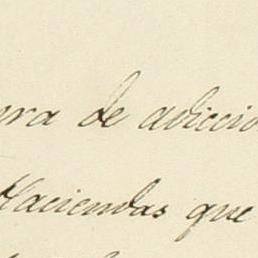 ra de adiccio
Haciendas que